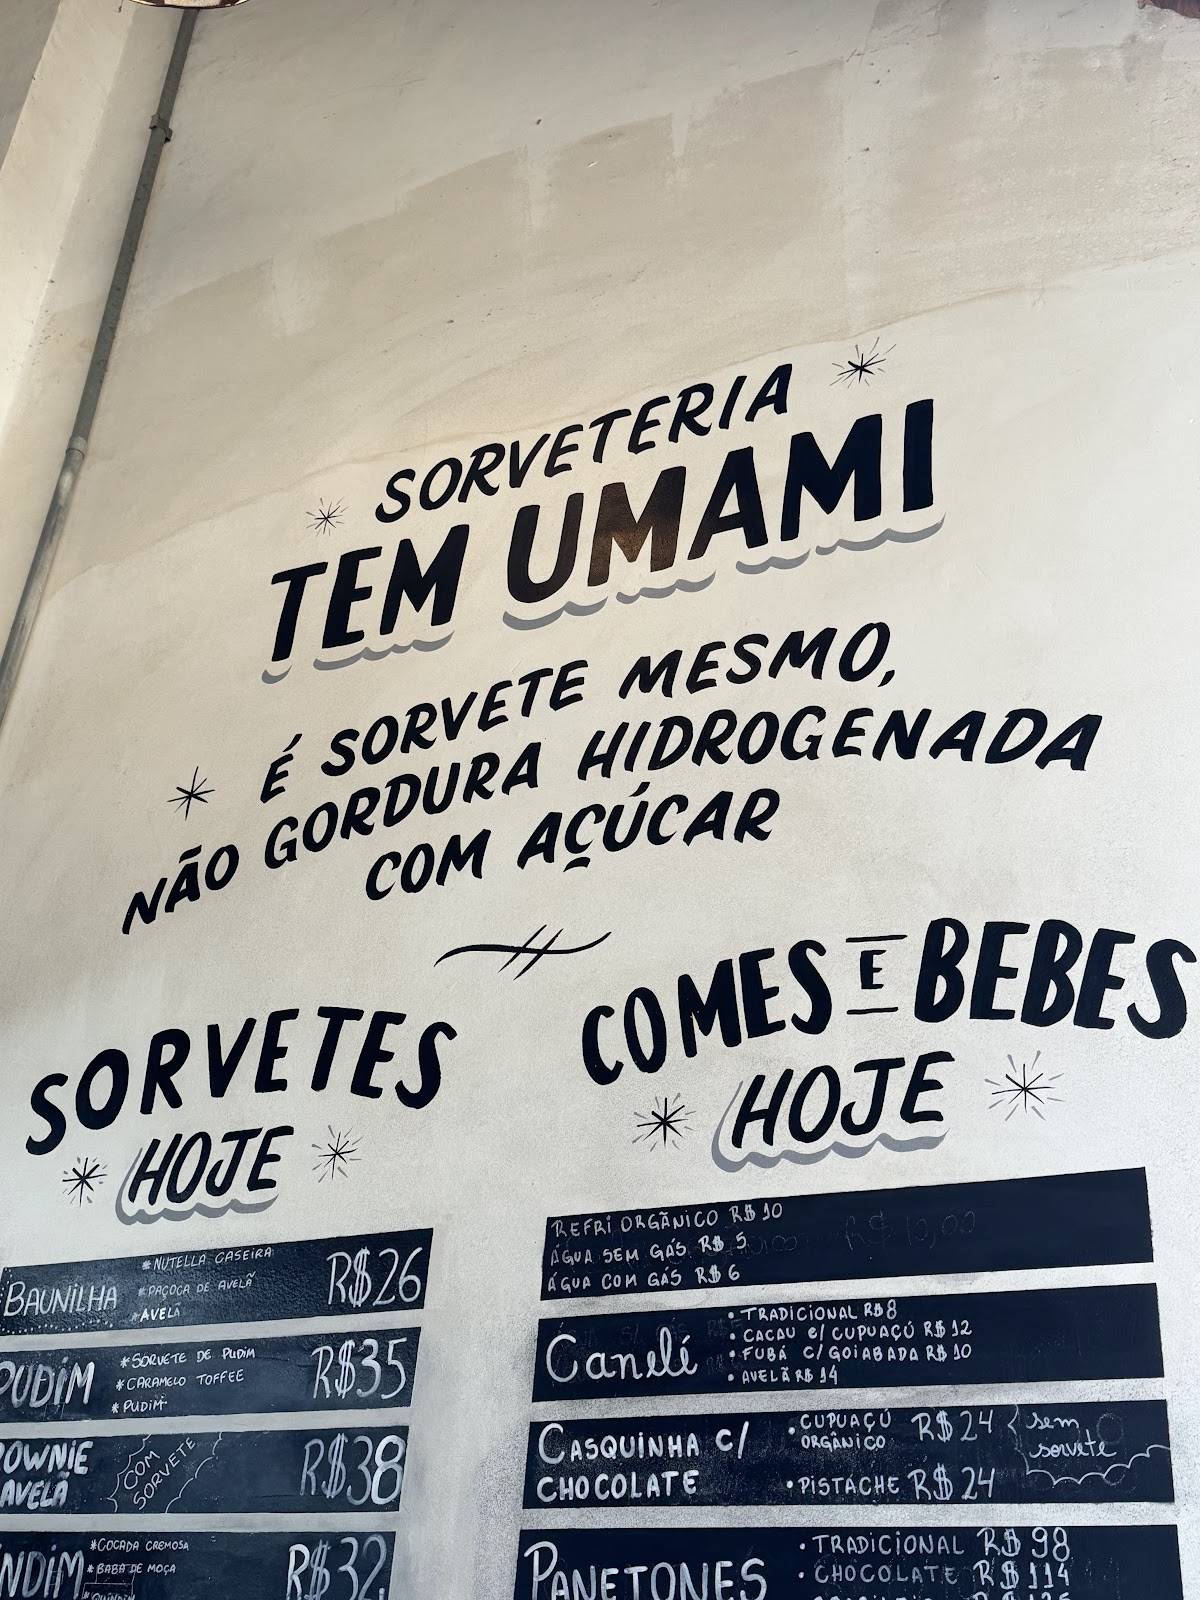 SORVETERIA
TEM UMAMI
É SORVETE MESMO,
NÃO GORDURA HIDROGENADA
COM AÇÚCAR
SORVETES
HOJE
BAUNILHA
*NUTELLA CASEIRA
*PAÇOCA DE AVELÃ
*AVELÃ
R$26
PUDIM
*SORVETE DE PUDIM
*CARAMELO TOFFEE
*PUDIM
R$35
OWNIE
AVELÃ
COM
SORVETE
R$38
NDIM
*COCADA CREMOSA
*BABA DE MOÇA
*QUINDIM
R$32
COMES E BEBES
HOJE
REFRI ORGÂNICO R$10
ÁGUA SEM GÁS R$ 5
ÁGUA COM GÁS R$ 6
R$ 10,00
Canelé
• TRADICIONAL R$8
• CACAU C/ CUPUAÇÚ R$ 12
• FUBÁ C/ GOIABADA R$ 10
• AVELÃ R$ 14
CASQUINHA C/
CHOCOLATE
• CUPUAÇÚ
ORGÂNICO
R$24
• PISTACHE R$24
sem
sorvete
PANETONES
• TRADICIONAL R$98
• CHOCOLATE R$114